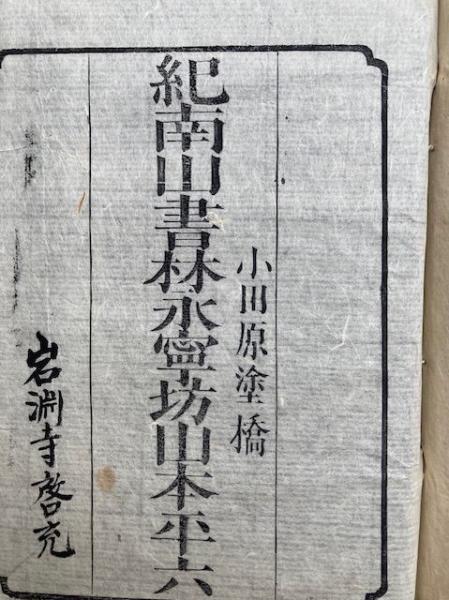 小田原塗橋
紀南山書林永寧坊山本平六
岩淵寺啓充